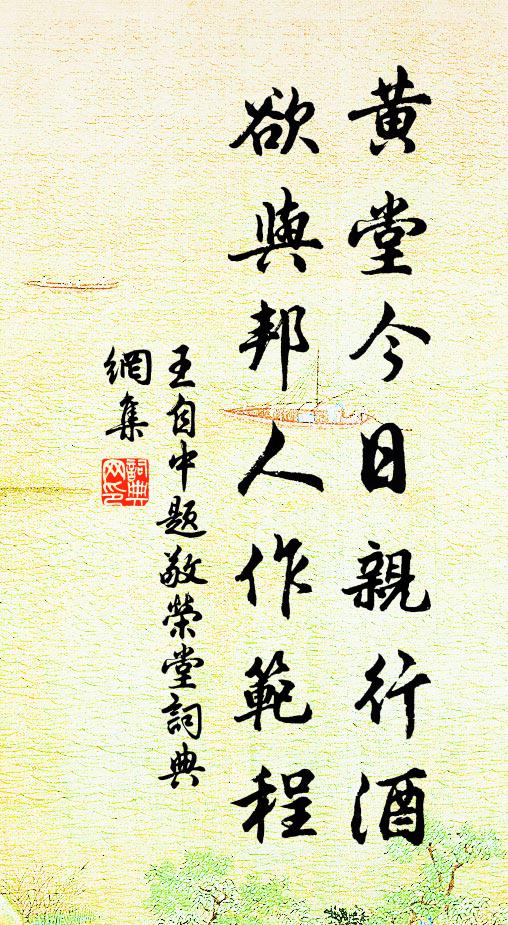 黃堂今日親行酒
欲與邦人作範程
王自中題敬榮堂詞典
網集
詞典
网印